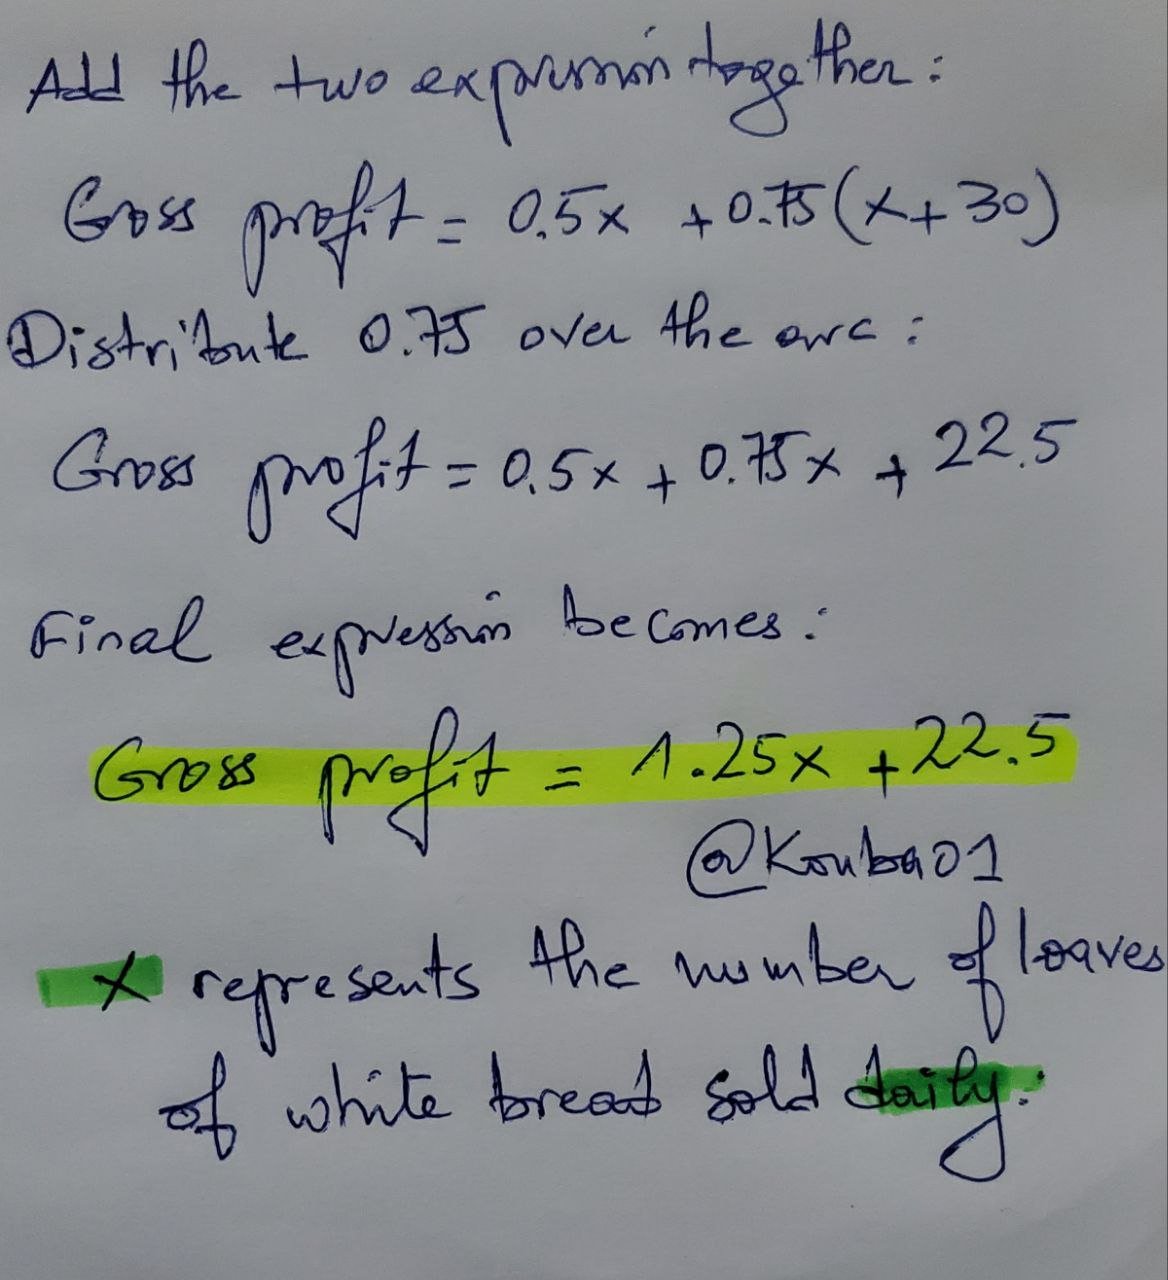 Add the two expression together:
Gross profit = 0.5x + 0.75(x+30)
Distribute 0.75 over the arc:
Gross profit = 0.5x + 0.75x + 22.5
Final expression becomes:
Gross profit = 1.25x + 22.5
@Kouba01
x represents the number of loaves
of white bread sold daily.